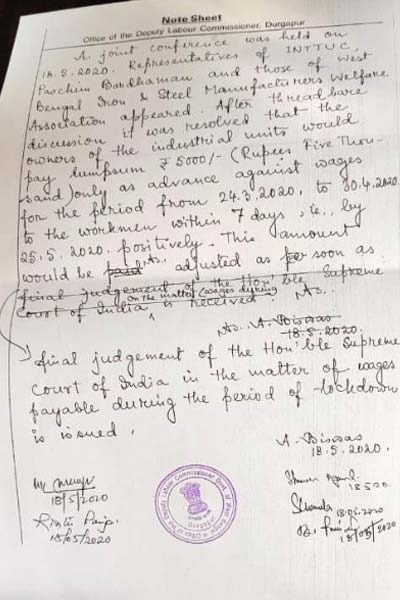 Note Sheet
Office of the Deputy Labour Commissioner, Durgapur
A joint conference was held on
18.5.2020. Representatives of INTTUC,
Paschim Bardhaman and those of West
Bengal Iron & Steel Manufacturers Welfare
Association appeared. After threadbare
discussion it was resolved that the
owners of the industrial units would
pay lumpsum ₹ 5000/- (Rupees Five Thou-
sand) only as advance against wages
for the period from 24.3.2020. to 30.4.2020.
to the workmen within 7 days, ie., by
25.5.2020. positively. This amount
would be paid adjusted as per soon as
final judgement of the Hon'ble Supreme
on the matter (wages during
Court of India is received
A. Biswas
18.5.2020.
final judgement of the Hon'ble Supreme
Court of India in the matter of wages
payable during the period of lockdown
is issued.
A. Biswas
18.5.2020.
18/5/2020
18.5.20
18/05/2020
18/05/2020